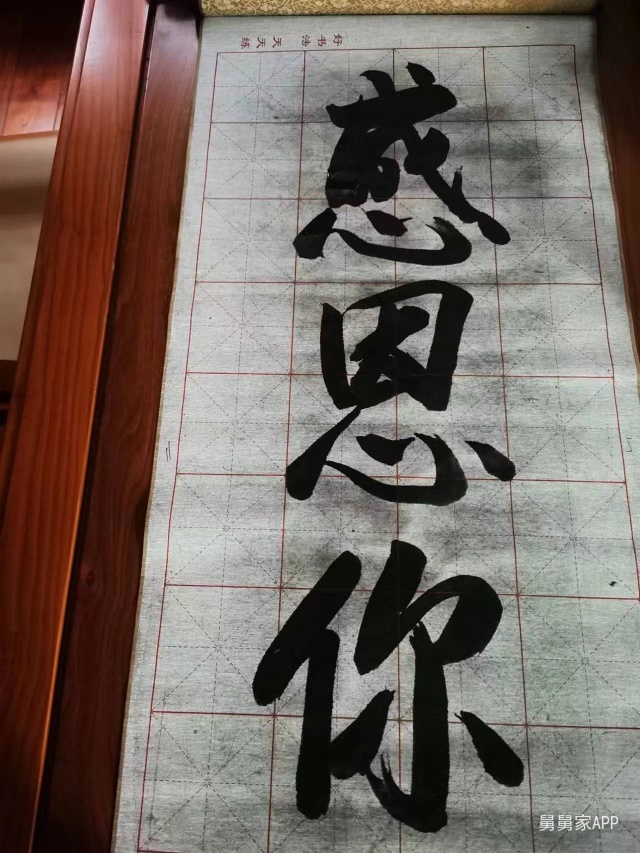 好书法 天天练
感恩你
舅舅家APP